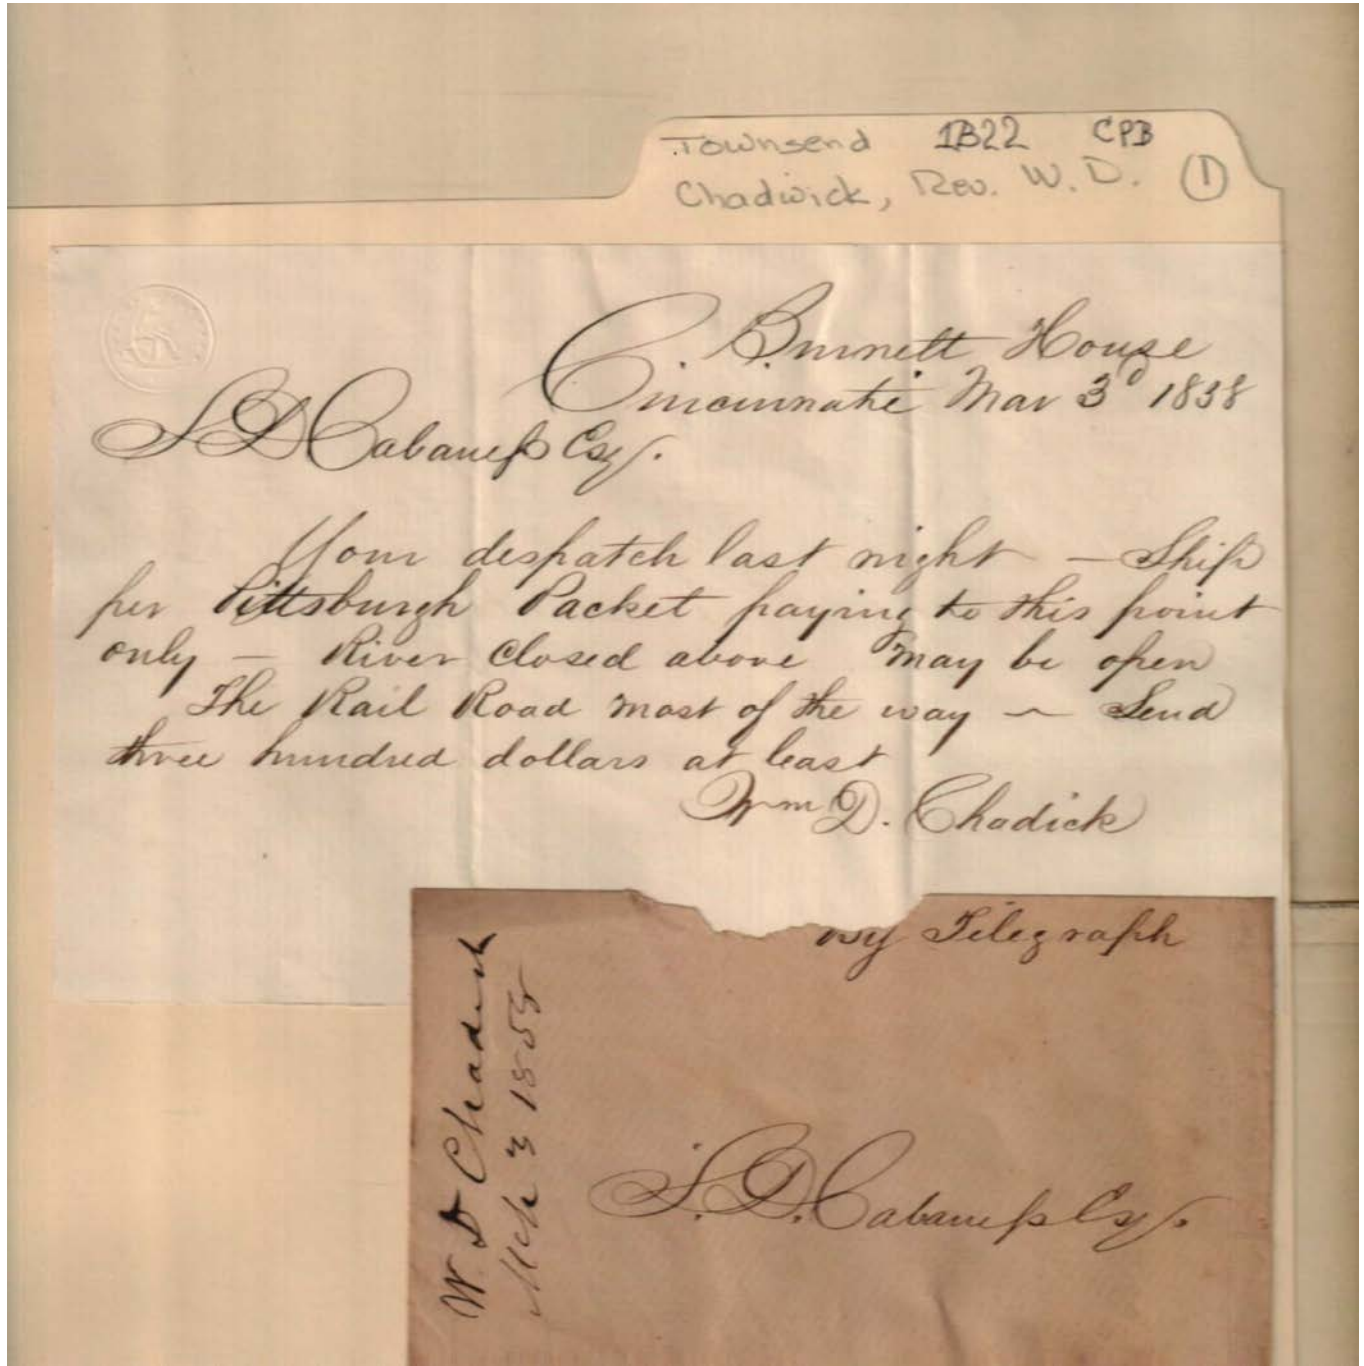 Townsend 1B22 CPB
Chadwick, Rev. W. D. 1
Burnett House
Cincinnati Mar 3d 1858
S D Cabaness Esqr.
Your despatch last night — Ship
per Pittsburgh Packet paying to this point
only — River Closed above May be open
The Rail Road most of the way ~ Send
three hundred dollars at least
Wm D. Chadick
By Telegraph
W. D Chadick
Mch 3 1858
S. D. Cabaness Esqr.